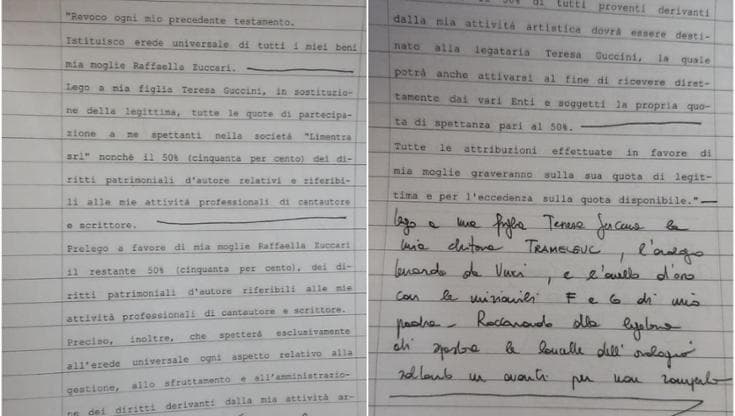 "Revoco ogni mio precedente testamento.
Istituisco erede universale di tutti i miei beni
mia moglie Raffaella Zuccari.
Lego a mia figlia Teresa Guccini, in sostituzio-
ne della legittima, tutte le quote di partecipa-
zione a me spettanti nella società "Limentra
srl" nonchè il 50% (cinquanta per cento) dei di-
ritti patrimoniali d'autore relativi e riferibi-
li alle mie attività professionali di cantautore
e scrittore.
Prelego a favore di mia moglie Raffaella Zuccari
il restante 50% (cinquanta per cento), dei di-
ritti patrimoniali d'autore riferibili alle mie
attività professionali di cantautore e scrittore.
Preciso, inoltre, che spetterà esclusivamente
all'erede universale ogni aspetto relativo alla
gestione, allo sfruttamento e all'amministrazio-
ne dei diritti derivanti dalla mia attività ar-
50% di tutti proventi derivanti
dalla mia attività artistica dovrà essere desti-
nato alla legataria Teresa Guccini, la quale
potrà anche attivarsi al fine di ricevere diret-
tamente dai vari Enti e soggetti la propria quo-
ta di spettanza pari al 50%.
Tutte le attribuzioni effettuate in favore di
mia moglie graveranno sulla sua quota di legit-
tima e per l'eccedenza sulla quota disponibile."
Lego a mia figlia Teresa Guccini la
mia chitarra TRAMELEUC, l'orologio
Leonardo da Vinci, e l'anello d'oro
con le iniziali F e G di mio
padre - Raccomando alla
di spostare le lancette dell'orologio
soltanto in avanti per non romperlo